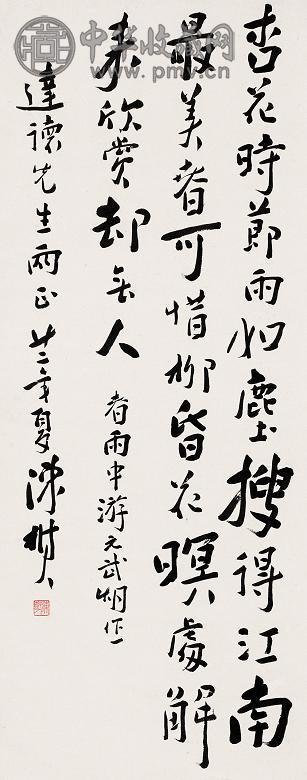 杏花時節雨如塵搜得江南
最美春可惜柳昏花暝處解
來欣賞却無人
春雨中游元武湖作
達德先生兩正 廿二年夏 陳樹人
中华收藏网